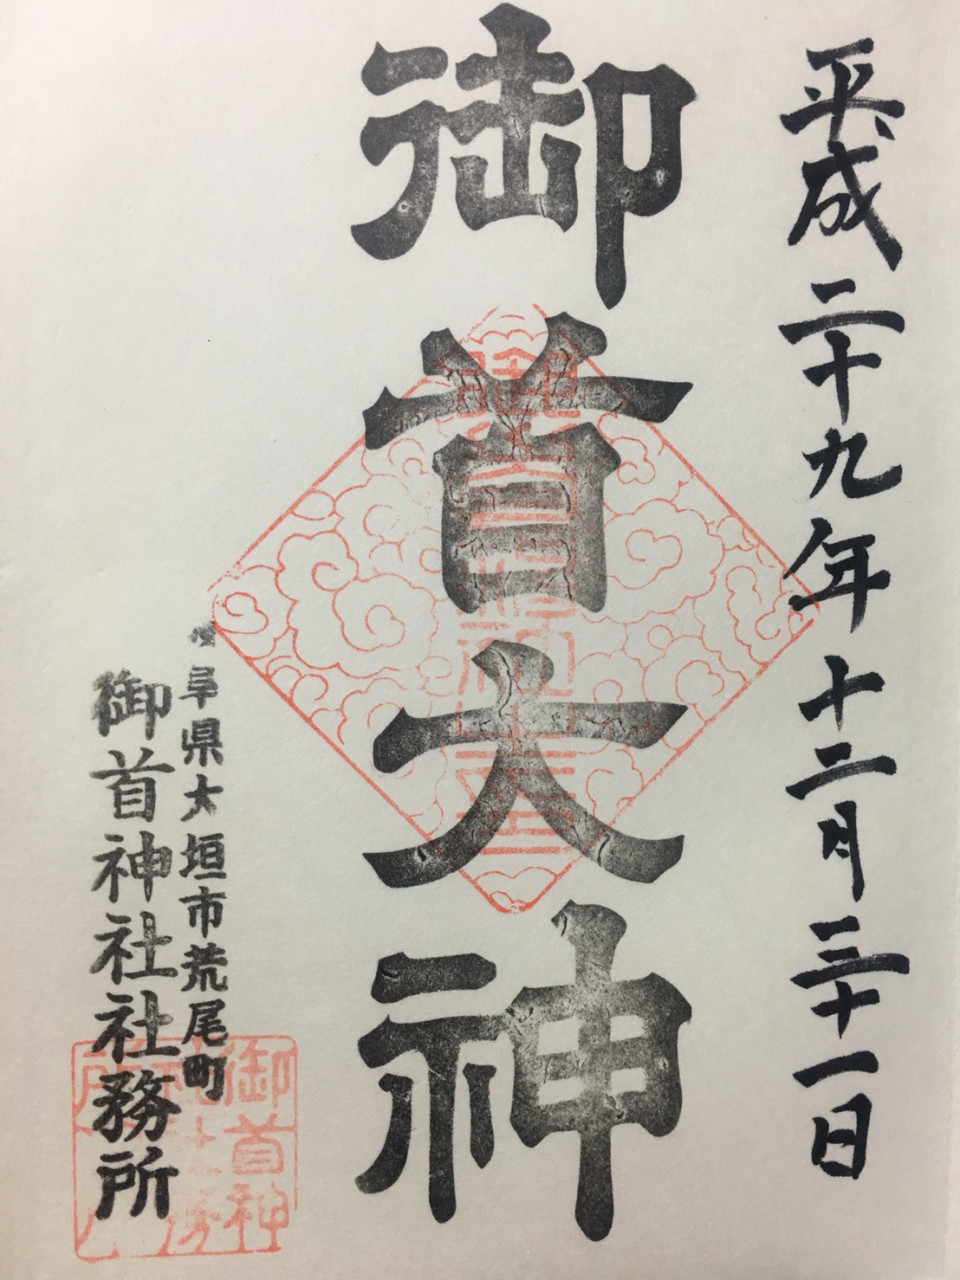 平成二十九年十二月三十一日
御首大神
阜県大垣市荒尾町
御首神社社務所
御首神